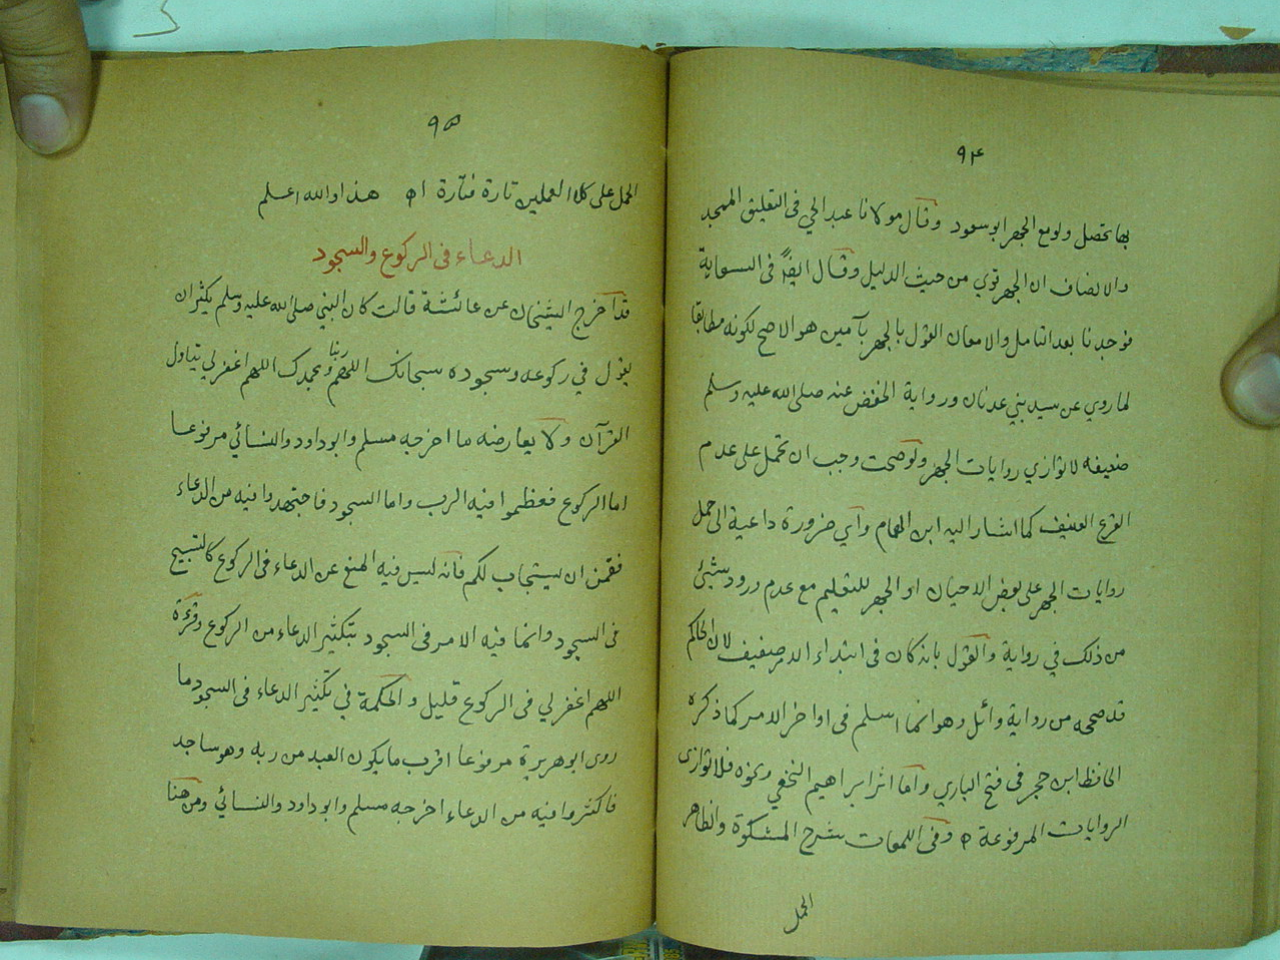 ۹۴
بها يحصل ولومع الجهر ابوسعود وقال مولانا عبد الحي فى التعليق الممجد
والانصاف ان الجهر قوي من حيث الدليل وقال ايضًا فى السعاية
فوجدنا بعد التامل والامعان القول بالجهر بآمين هو الاصح لكونه مطابقا
لما روي عن سيد بني عدنان ورواية الخفض عنه صلى الله عليه وسلم
ضعيفه لا توازي روايات الجهر ولو صحت وجب ان تحمل على عدم
القرع العنيف كما اشار اليه ابن الهمام وآي ضرورة داعية الى حمل
روايات الجهر على بعض الاحيان او الجهر للتعليم مع عدم ورود شئ
من ذلك في رواية والقول بانه كان فى ابتداء الامر ضعيف لان الحاكم
قد صححه من رواية وائل وهو انما اسلم فى اواخر الامر كما ذكره
الحافظ ابن حجر فى فتح الباري واما اثر ابراهيم النخعي ونحوه فلا توازى
الروايات المرفوعة ه وفى اللمعات شرح المشكوة والظاهر
الحمل
۹۵
الحمل على كلا العملين تارة فتارة اه هذا والله اعلم
الدعاء فى الركوع والسجود
قد آخرج الشيخان عن عائشة قالت كان النبي صلى الله عليه وسلم يكثر ان
يقول في ركوعه وسجوده سبحانك اللهم ربنا وبحمدك اللهم اغفر لي يتاول
القرآن ولا يعارضه ما اخرجه مسلم وابوداود والنسائي مرفوعا
اما الركوع فعظموا فيه الرب واما السجود فاجتهدوا فيه من الدعاء
فقمن ان يستجاب لكم فآنه ليس فيه المنع عن الدعاء فى الركوع كالتسبيح
فى السجود وانما فيه الامر فى السجود بتكثير الدعاء من الركوع وقرءة
اللهم اغفر لي فى الركوع قليل والحكمة في تكثير الدعاء فى السجود ما
روى ابوهريرة مرفوعا اقرب ما يكون العبد من ربه وهو ساجد
فاكثروا فيه من الدعاء اخرجه مسلم وابوداود والنسائي ومن هنا